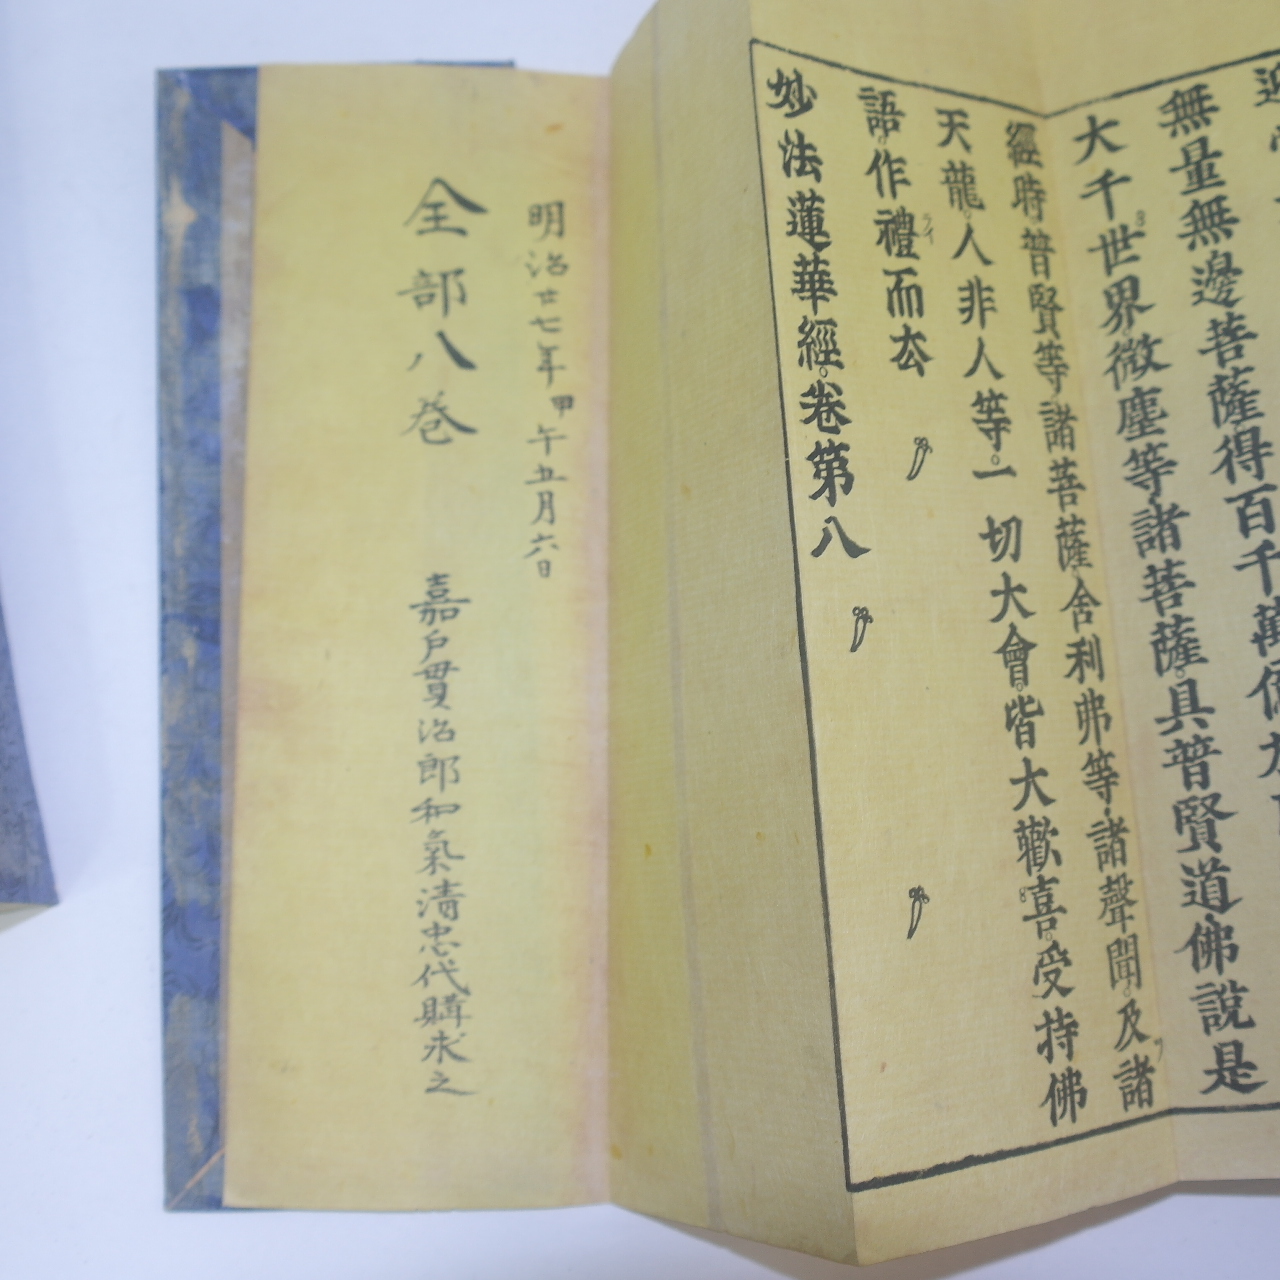 無量無邊菩薩得百千萬
大千世界微塵等諸菩薩具普賢道佛說是
經時普賢等諸菩薩舍利弗等諸聲聞及諸
天龍人非人等一切大會皆大歡喜受持佛
語作禮而去
妙法蓮華經卷第八
明治廿七年甲午五月六日
全部八巻
嘉戸貫治郎和氣清忠代購求之